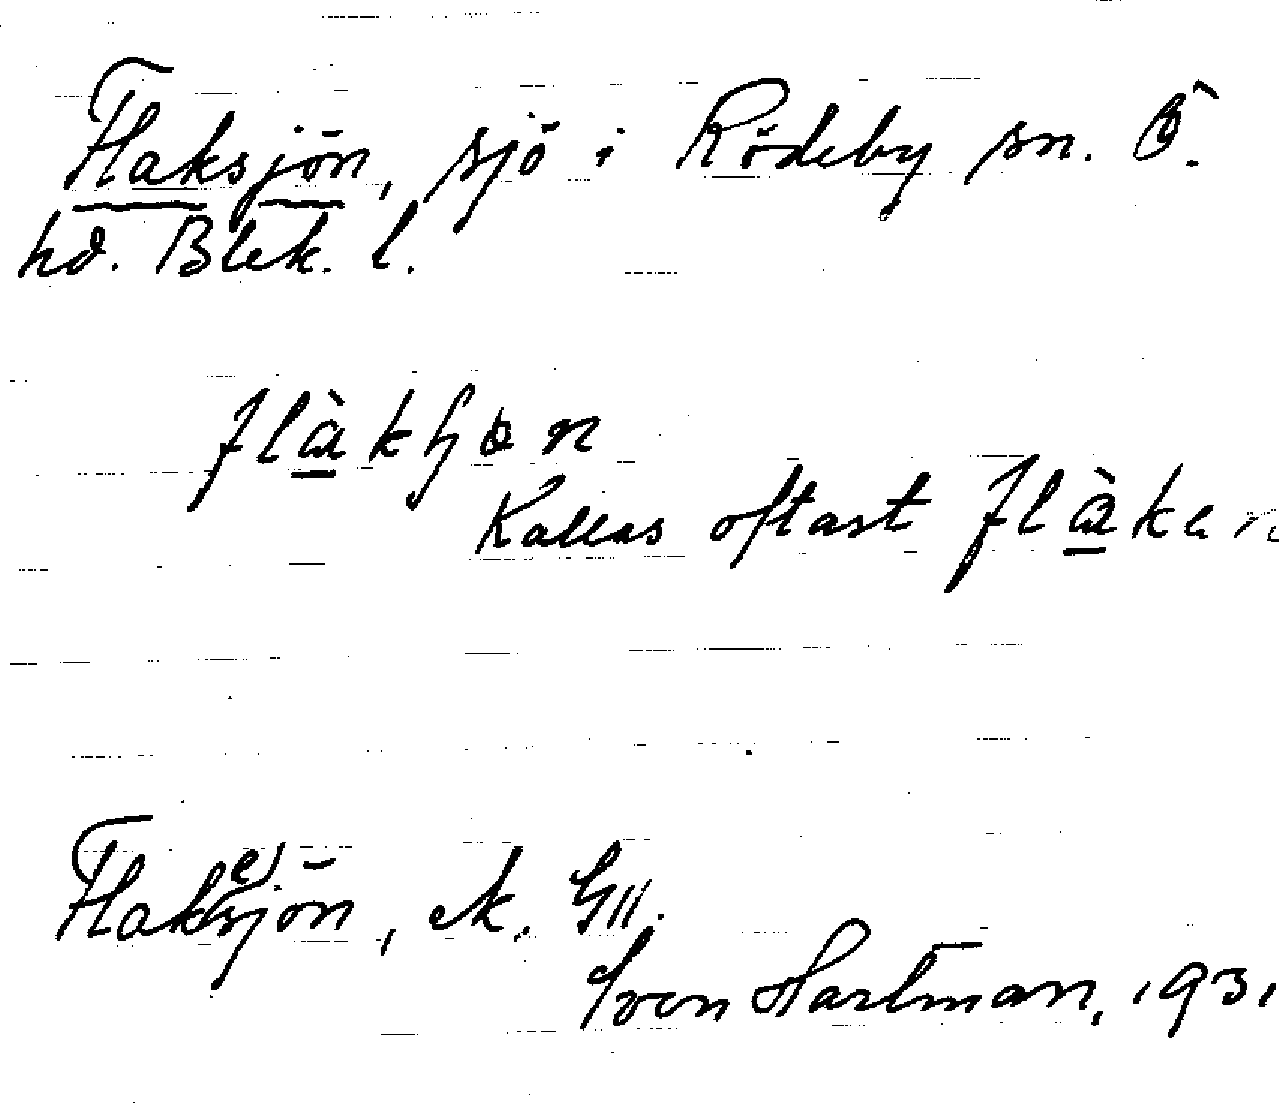 Flaksjön, sjö i Rödeby sn. Ö.
hd. Blek. l.
Kallas oftast
Flaksjön, ek. G11.
Sven Hartman, 1931